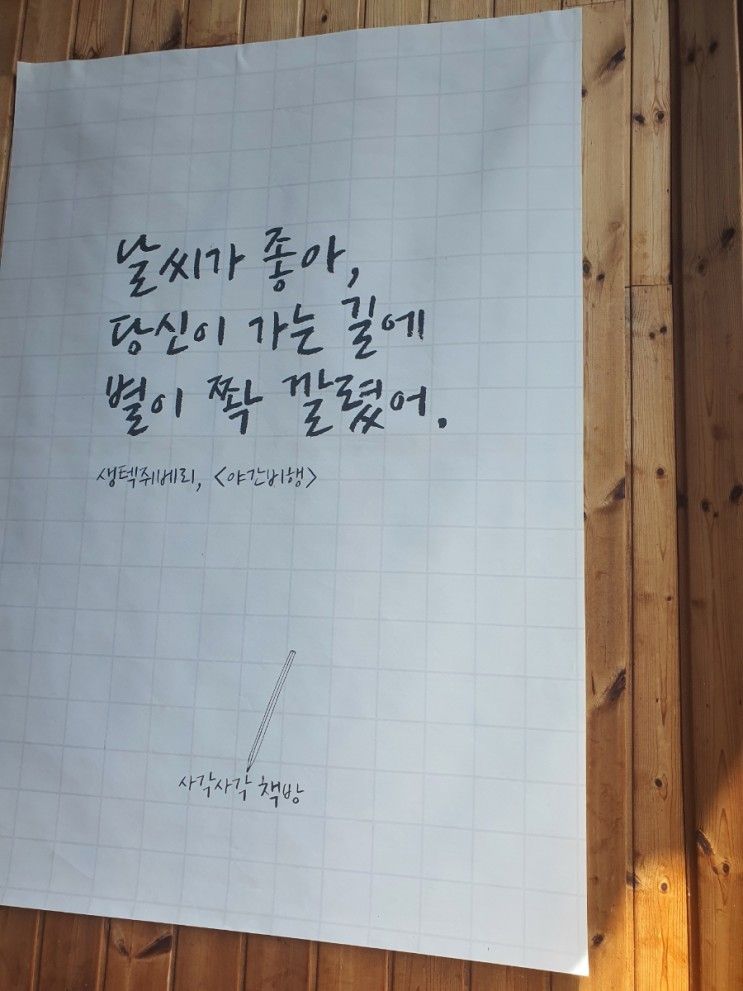 날씨가 좋아,
당신이 가는 길에
별이 쫙 깔렸어.
생텍쥐베리, <야간비행>
사각사각 책방